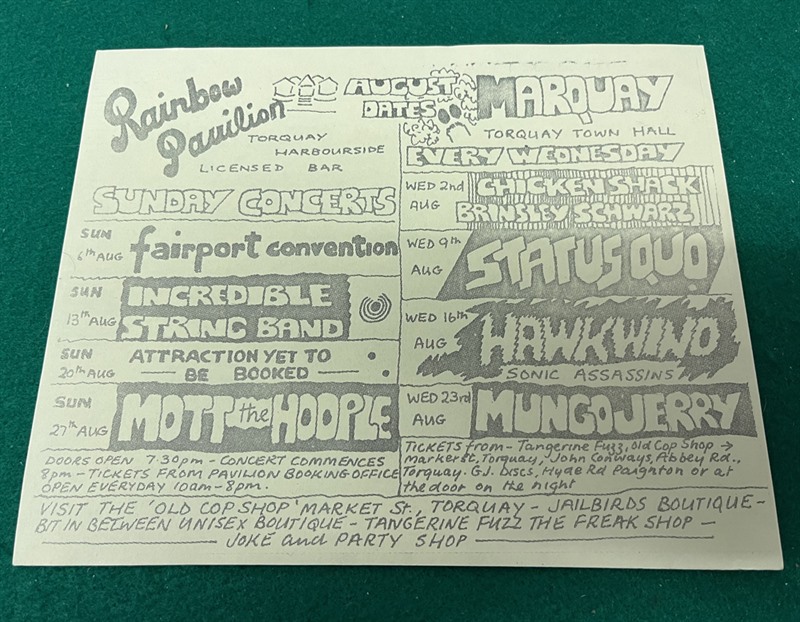 Rainbow
Pavilion
TORQUAY
HARBOURSIDE
LICENSED BAR
SUNDAY CONCERTS
SUN
6th AUG
fairport convention
SUN
13th AUG
INCREDIBLE
STRING BAND
SUN
20th AUG
ATTRACTION YET TO
— BE BOOKED —
SUN
27th AUG
MOTT the HOOPLE
DOORS OPEN 7.30pm - CONCERT COMMENCES
8pm - TICKETS FROM PAVILION BOOKING OFFICE
OPEN EVERYDAY 10am - 8pm.
AUGUST
DATES
MARQUAY
TORQUAY TOWN HALL
EVERY WEDNESDAY
WED 2nd
AUG
CHICKEN SHACK
BRINSLEY SCHWARZ
WED 9th
AUG
STATUS QUO
WED 16th
AUG
HAWKWIND
SONIC ASSASSINS
WED 23rd
AUG
MUNGO JERRY
TICKETS from - Tangerine Fuzz, Old Cop Shop →
Market St, Torquay, John Conways, Abbey Rd.,
Torquay. G.J. Discs, Hyde Rd Paignton or at
the door on the night
VISIT THE 'OLD COP SHOP' MARKET St., TORQUAY - JAILBIRDS BOUTIQUE -
BIT IN BETWEEN UNISEX BOUTIQUE - TANGERINE FUZZ THE FREAK SHOP —
— JOKE and PARTY SHOP —